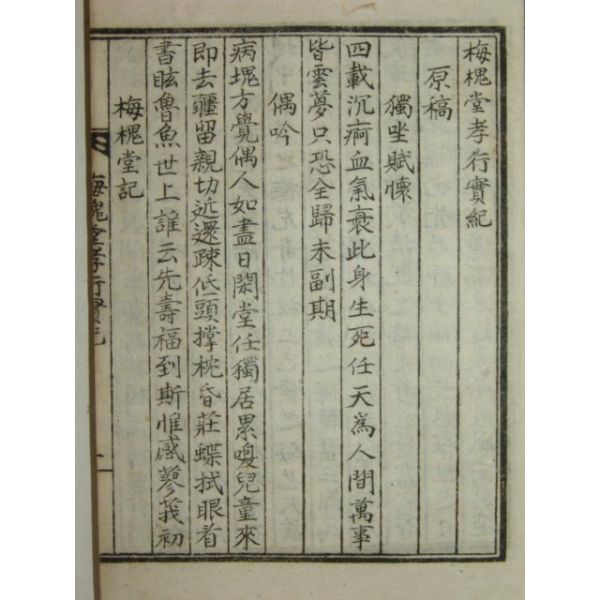 梅槐堂孝行實紀
原稿
獨坐賦懷
四載沉痾血氣衰此身生死任天爲人間萬事
皆雲夢只恐全歸未副期
偶吟
病塊方覺偶人如盡日閑堂任獨居累嗳兒童來
即去疆留親切近還疎低頭撑枕昏莊蝶拭眼看
書眩魯魚世上誰云先壽福到斯惟感蓼莪初
梅槐堂記
梅槐堂孝行實紀